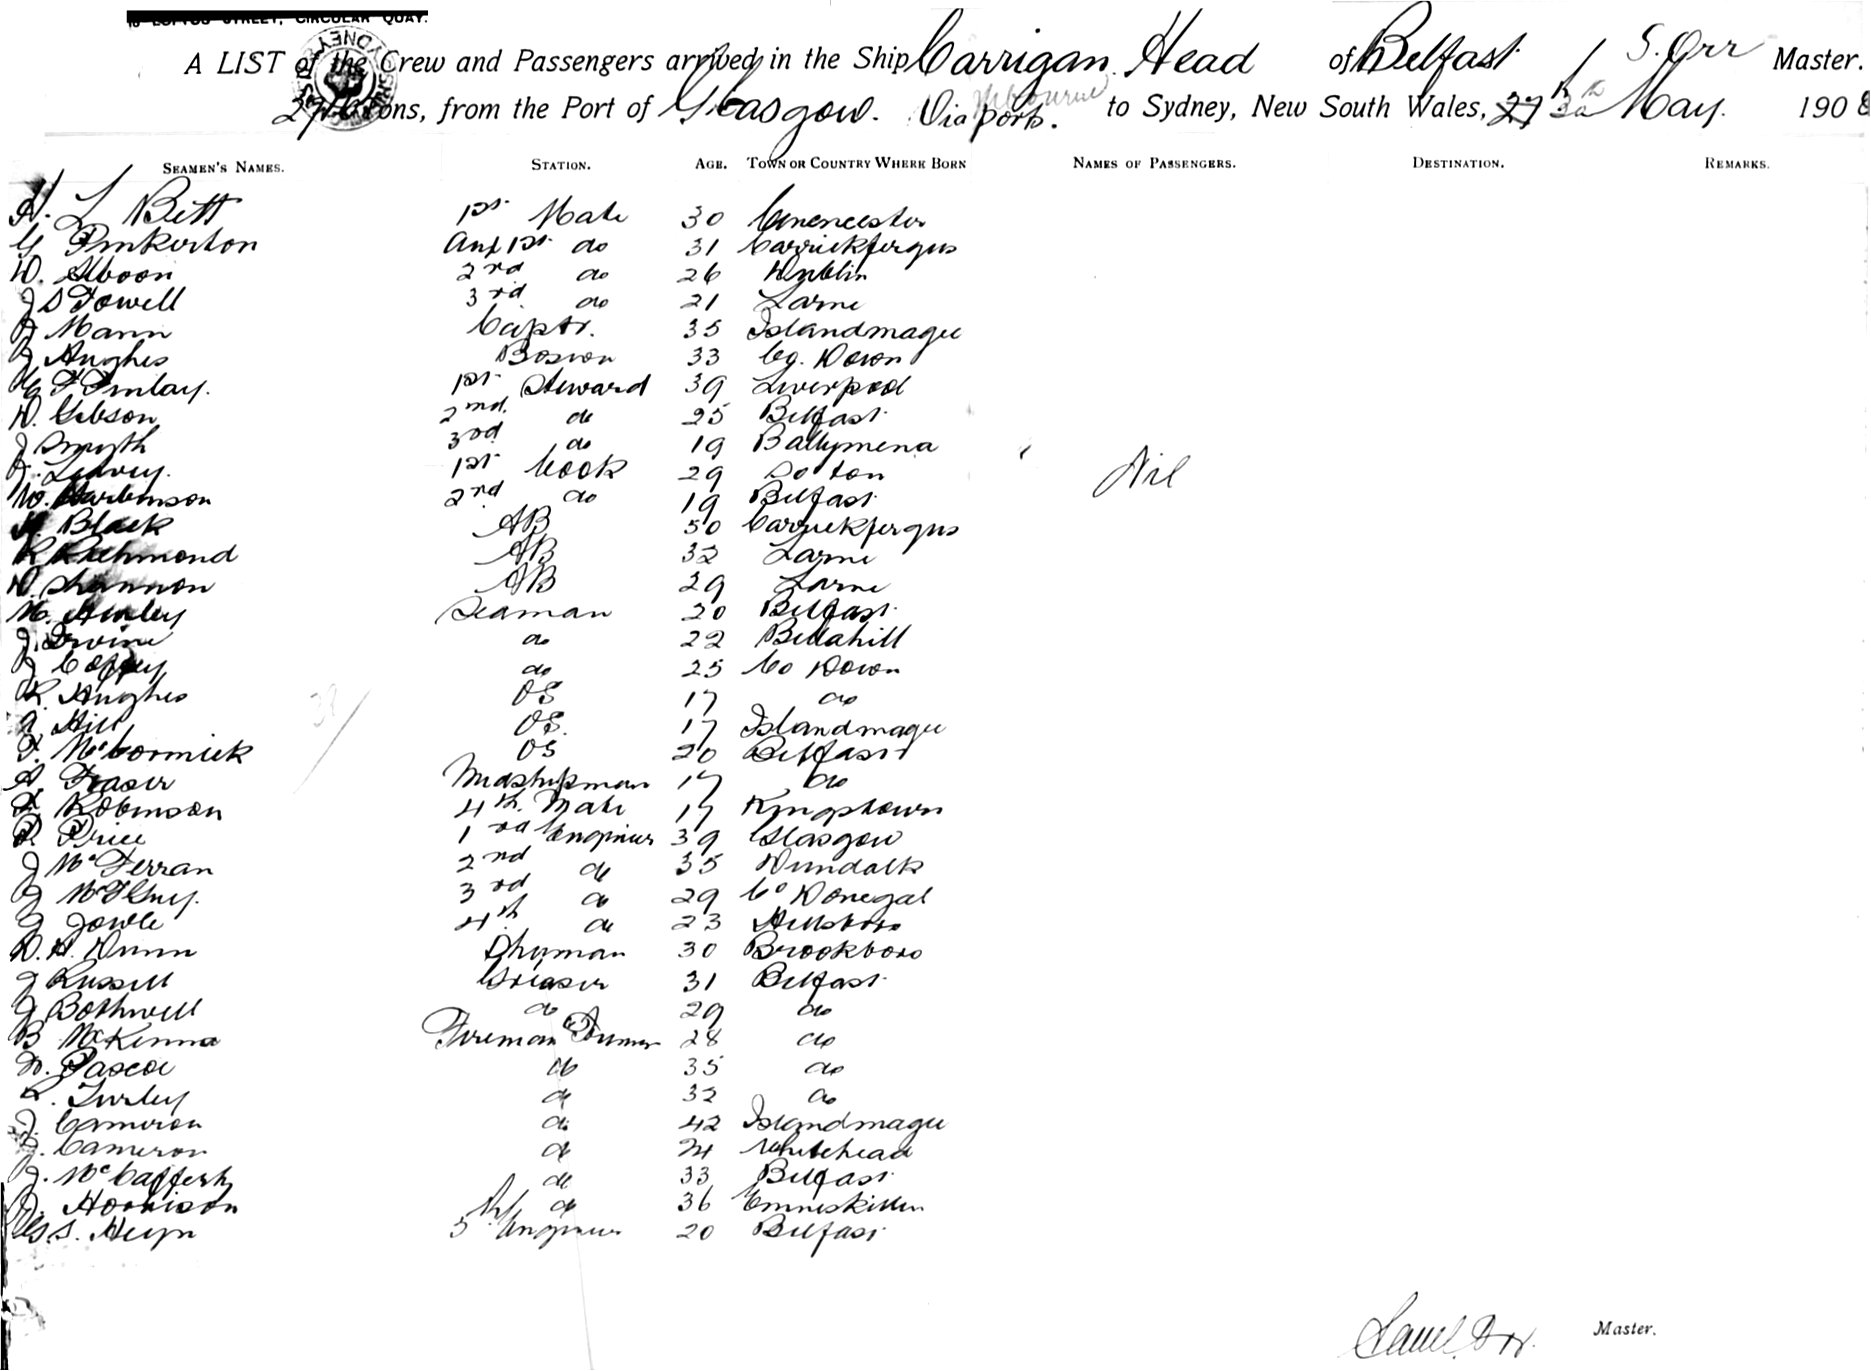 LOFTUS STREET, CIRCULAR QUAY.
A LIST of the Crew and Passengers arrived in the Ship Carrigan Head of Belfast S. Orr Master.
Tons, from the Port of Glasgow. Via Melbourne ports. to Sydney, New South Wales, 27 30th May. 1908
SEAMEN'S NAMES. STATION. AGE. TOWN OR COUNTRY WHERE BORN NAMES OF PASSENGERS. DESTINATION. REMARKS.
H. L Bett 1st Mate 30 Cirencester
G Pinkerton Aux 1st do 31 Carrickfergus
D. 2nd do 26 Dublin
J S Towell 3rd do 21 Larne
J Mann Captr. 35 Islandmagee
J Hughes Boson 33 Co. Down
F Finlay. 1st Steward 39 Liverpool
D. Gibson 2nd. do 25 Belfast
J Smyth 3rd do 19 Ballymena
J. Leavey. 1st Cook 29 So'ton
W. Harbinson 2nd do 19 Belfast
Black AB 50 Carrickfergus
R Richmond AB 32 Larne
D. Shannon AB 29 Larne
Hurley Seaman 20 Belfast
J. Irvine do 22 Bellahill
J Coffey do 25 Co Down
R. Hughes OS 17 do
A Hill OS. 17 Islandmagee
F. McCormick OS 20 Belfast
A Fraser Midshipman 17 do
Robinson 4th Mate 17 Kingstown
R Price 1 Engineer 39 Glasgow
J McFerran 2nd do 35 Dundalk
J 3rd do 29 Co Donegal
J Jowle 4th do 23 Hillsboro
D. H. Dunn 30 Brookboro
J Russell Greaser 31 Belfast
J Bothwell do 29 do
B McKenna Fireman & Trimmer 28 do
D. Pascoe do 35 do
R. Turley do 32 do
J. Cameron do 42 Islandmagee
Cameron do 24 Whitehead
J. McCafferty do 33 Belfast
J. Morrison do 36 Enniskillen
G. S. Heyn 5 Engineer 20 Belfast
Nil
Saml. Orr. Master.